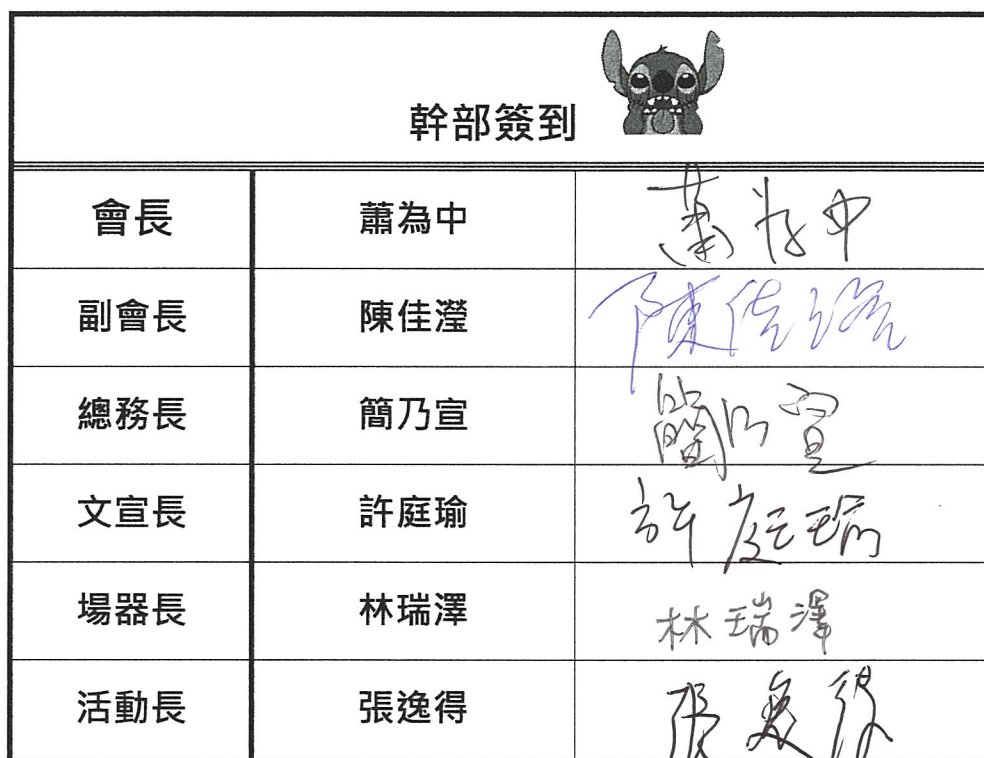 幹部簽到
會長 蕭為中 蕭為中
副會長 陳佳瀅 陳佳瀅
總務長 簡乃宣 簡乃宣
文宣長 許庭瑜 許庭瑜
場器長 林瑞澤 林瑞澤
活動長 張逸得 張逸得